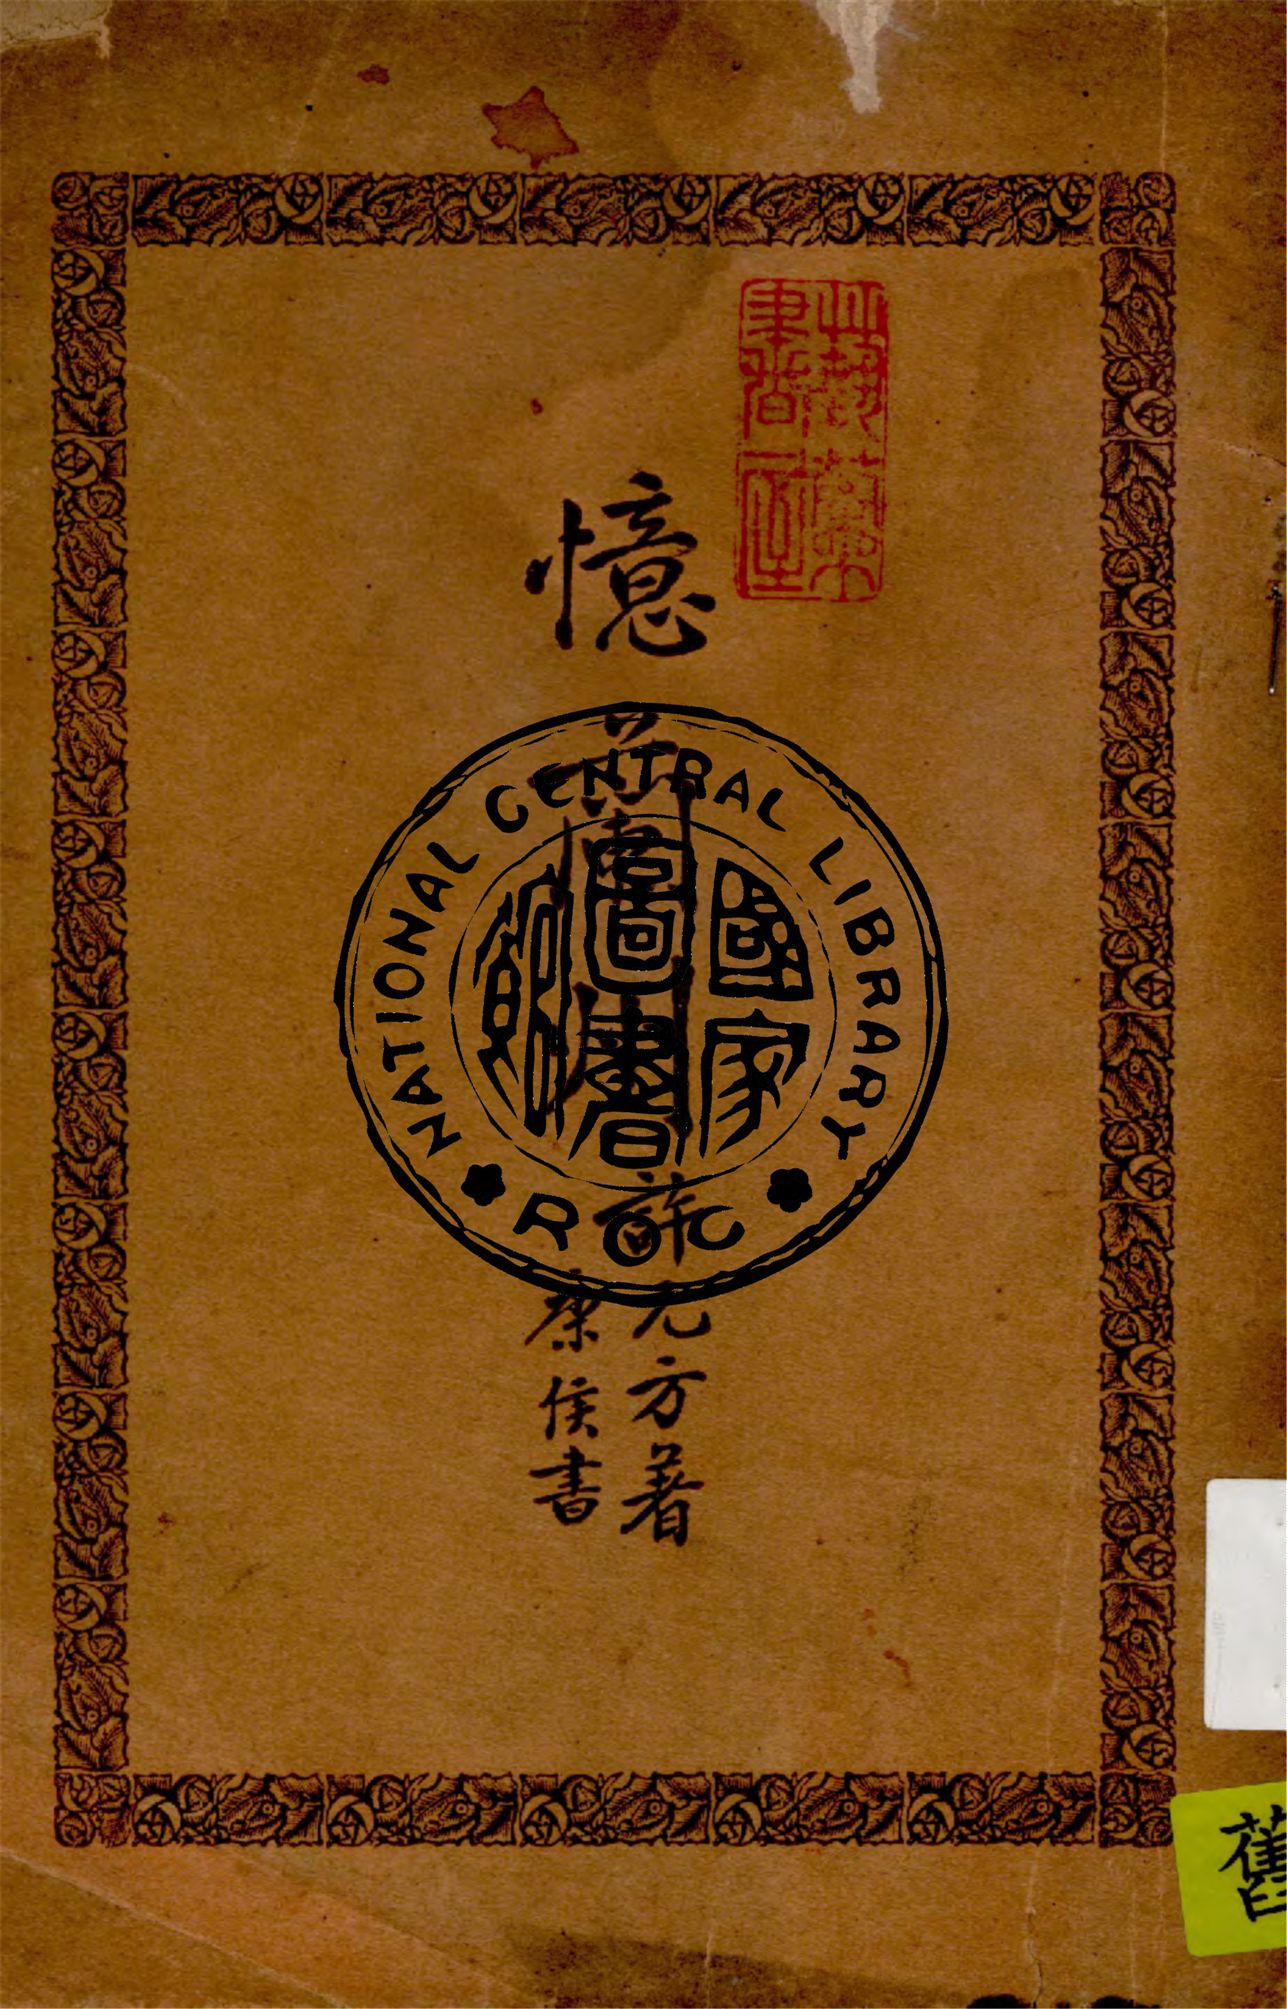 憶
許元方著
康侯書
NATIONAL CENTRAL LIBRARY
國家
圖書
館
ROC
舊